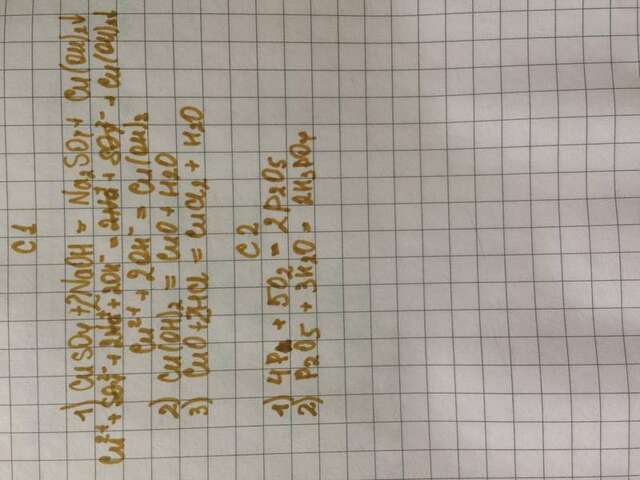 C1
1) CuSO4 + 2NaOH = Na2SO4 + Cu(OH)2↓
Cu²⁺ + SO4²⁻ + 2Na⁺ + 2OH⁻ = 2Na⁺ + SO4²⁻ + Cu(OH)2↓
Cu²⁺ + 2OH⁻ = Cu(OH)2
2) Cu(OH)2 = CuO + H2O
3) CuO + 2HCl = CuCl2 + H2O
C2
1) 4P + 5O2 = 2P2O5
2) P2O5 + 3H2O = 2H3PO4